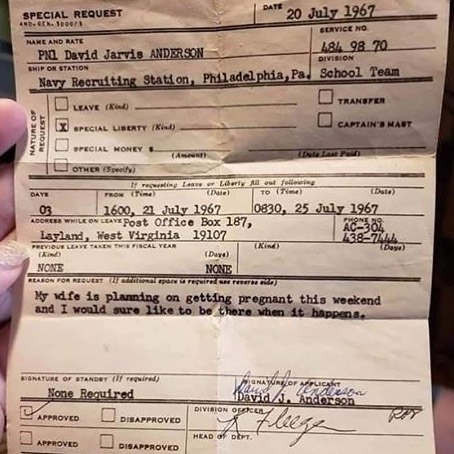 SPECIAL REQUEST
DATE 20 July 1967
NAME AND RATE
SERVICE NO.
PN1 David Jarvis ANDERSON
484 98 70
SHIP OR STATION
DIVISION
Navy Recruiting Station, Philadelphia, Pa. School Team
NATURE OF REQUEST
LEAVE (Kind)
TRANSFER
x SPECIAL LIBERTY (Kind)
CAPTAIN'S MAST
SPECIAL MONEY $ (Amount) (Date Last Paid)
OTHER (Specify)
If requesting Leave or Liberty fill out following
DAYS FROM (Time) (Date) TO (Time) (Date)
03 1600, 21 July 1967 0830, 25 July 1967
ADDRESS WHILE ON LEAVE Post Office Box 187,
PHONE NO.
AC-304
Layland, West Virginia 19107
438-7444
PREVIOUS LEAVE TAKEN THIS FISCAL YEAR
(Kind) (Days) (Kind) (Days)
NONE NONE
REASON FOR REQUEST (If additional space is required use reverse side)
My wife is planning on getting pregnant this weekend
and I would sure like to be there when it happens.
SIGNATURE OF STANDBY (If required)
SIGNATURE OF APPLICANT
David J Anderson
None Required
David J. Anderson
APPROVED DISAPPROVED
DIVISION OFFICER
APPROVED DISAPPROVED
HEAD OF DEPT.